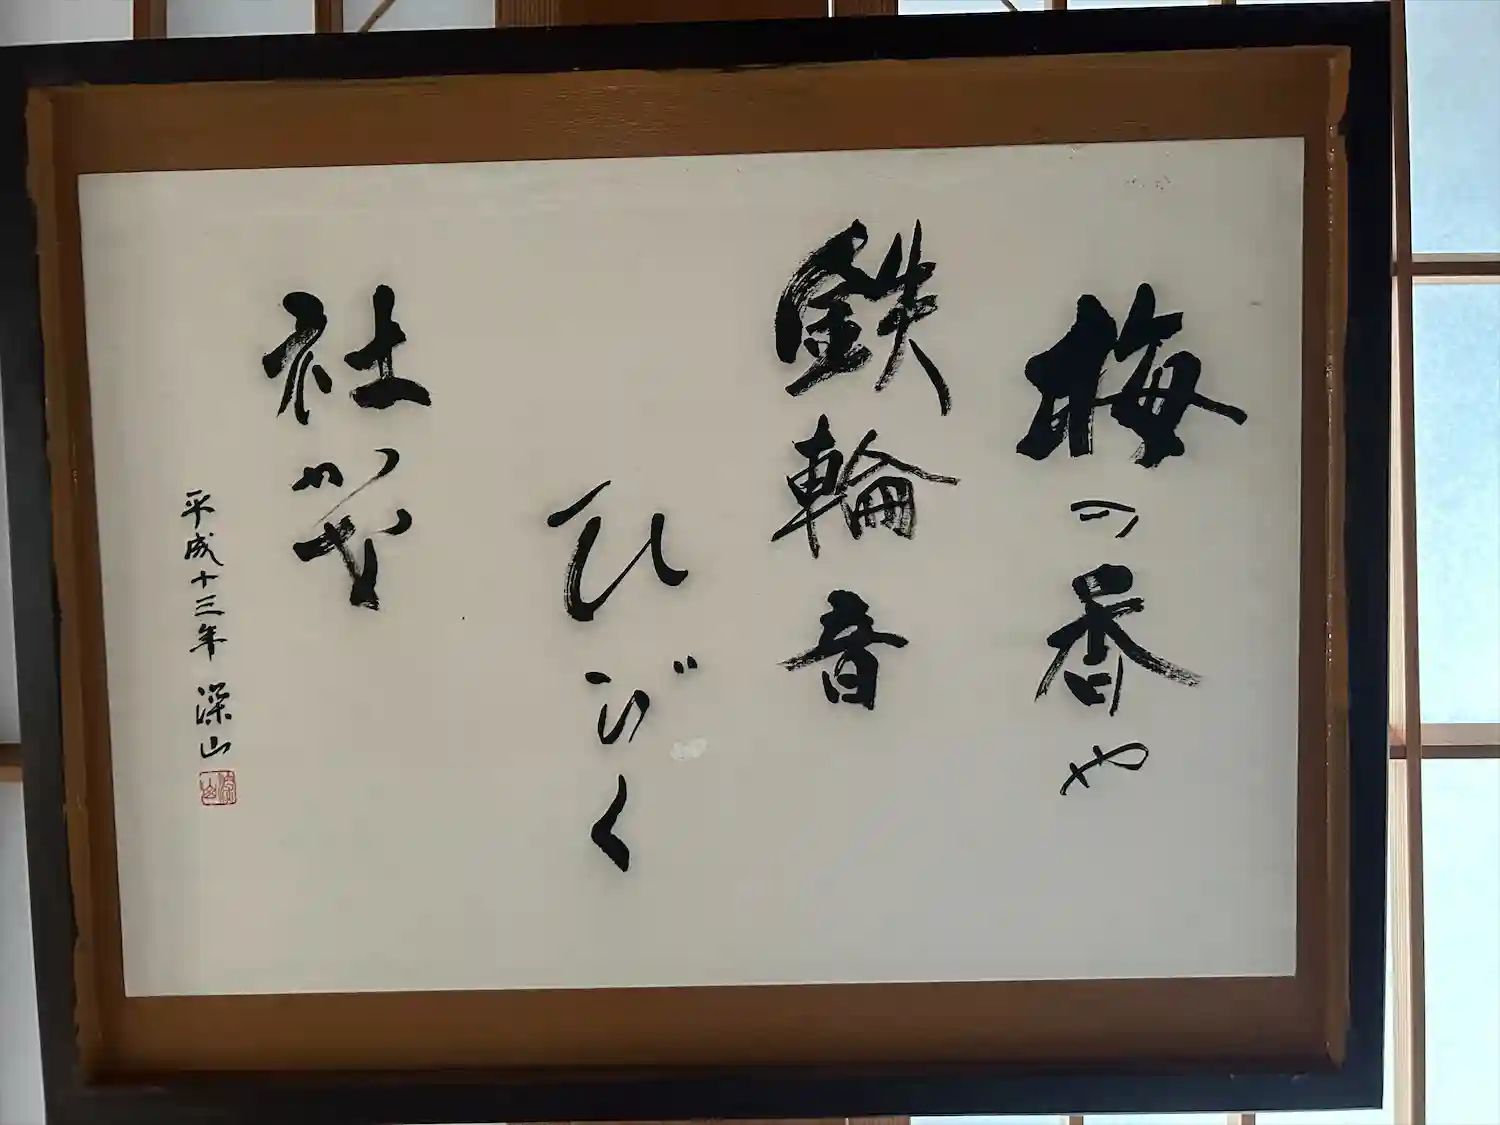 梅の香や
鉄輪音
ひびく
社
平成十三年 深山
深山